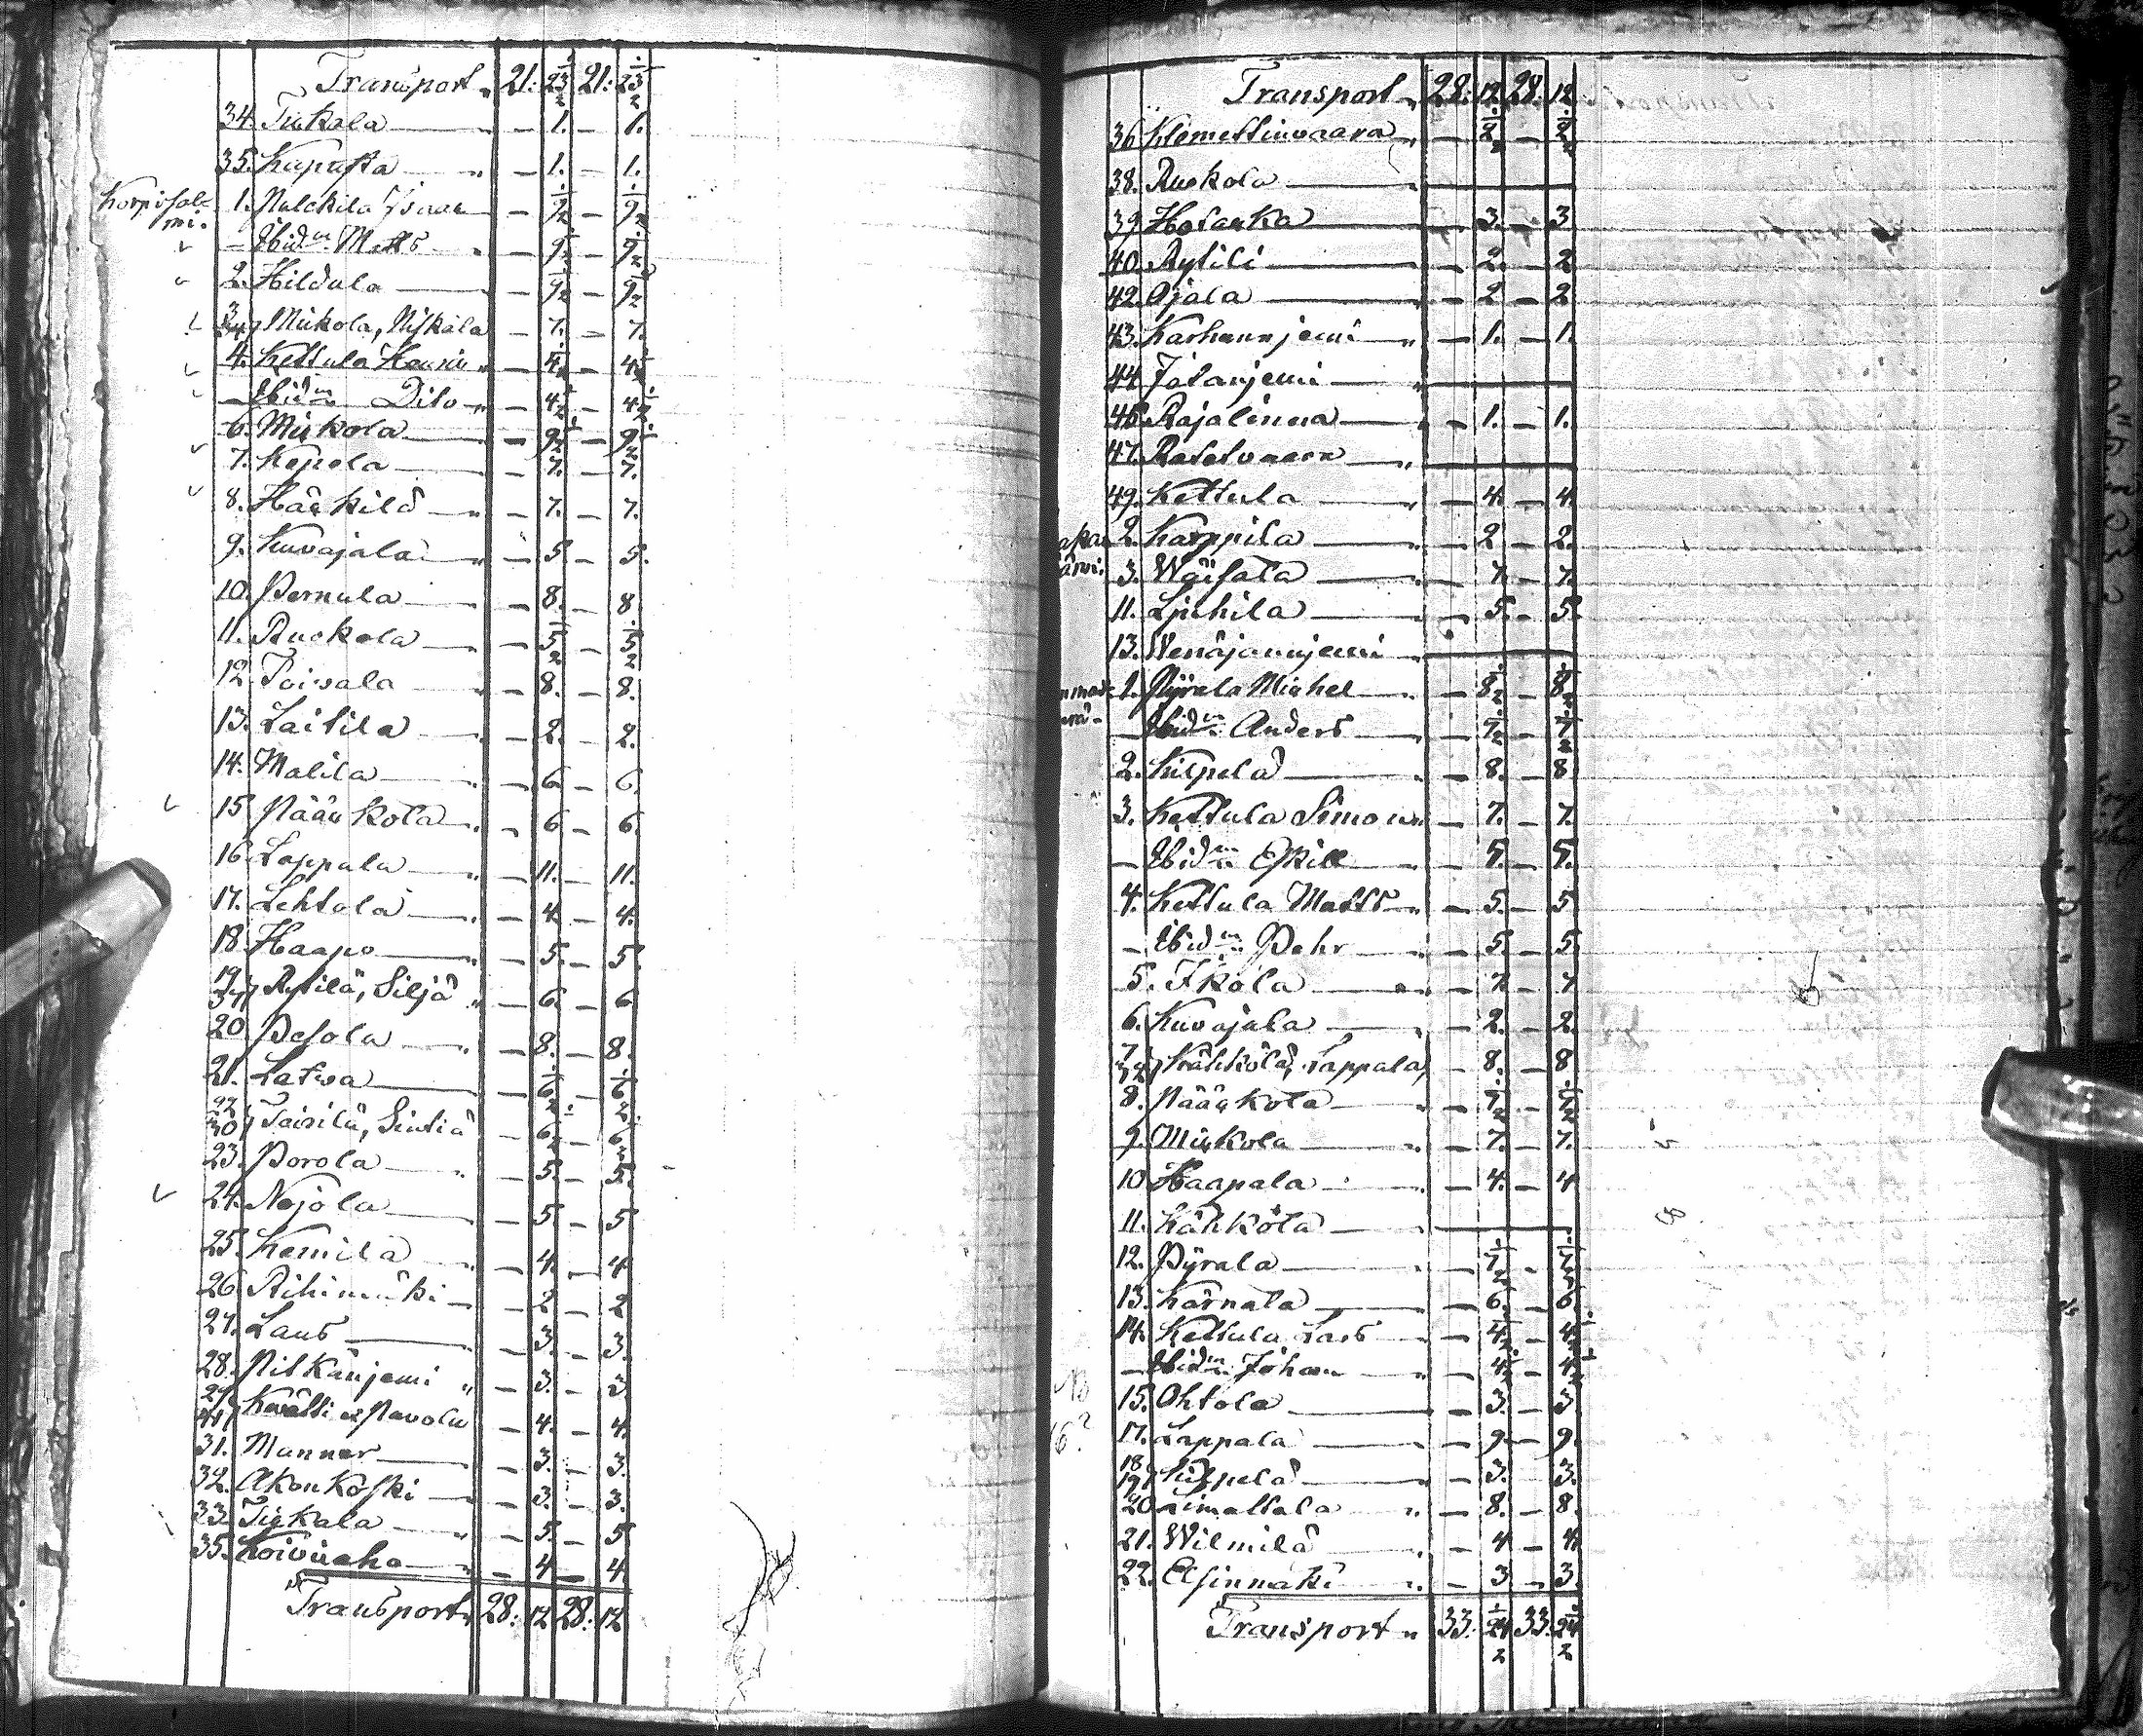 Transport „ 21: 23½ 21: 23½
34. Tiukala „ — 1. — 1.
35. Kapusta „ — 1. — 1.
Korpisal=
mi.
1. Pulckila Isaac — 9½ — 9½
— Ibidm Matts „ — 9½ — 9½
2. Hildula „ — 9½ — 9½
3, 34 Miukola, Niskala — 7. — 7.
4. Kettula Henric „ — 4½ — 4½
— Ibidm Dito „ — 4½ — 4½
6. Miukola — 9½ — 9½
7. Kepola — 7. — 7.
8. Häckilä „ — 7. — 7.
9. Kuvajala „ — 5. — 5.
10. Pernula „ — 8. — 8
11. Ruokola „ — 5½ — 5½
12. Toivala „ — 8. — 8.
13. Laitila „ — 2. — 2.
14. Malila „ — 6 — 6.
15. Pääckölä „ — 6 — 6.
16. Lappala „ — 11. — 11.
17. Lehtola „ — 4. — 4.
18. Haapo „ — 5. — 5.
19, 37 Rytilä, Siljä „ — 6. — 6
20. Pesola „ — 8. — 8.
21. Latwa — 6½ — 6½
22, 30 Tairila, Sintiä — 6½ — 6½
23. Porola „ — 5. — 5.
24. Nojola — 5. — 5
25. Kemilä „ — 4. — 4
26. Riihimäki — 2 — 2
27. Laus „ — 3. — 3.
28. Pitkänjemi „ — 3. — 3
29, 41 Kivätti et Pavola — 4. — 4.
31. Manner „ — 3. — 3.
32. Akonkoski „ — 3. — 3.
33. Tiukala „ — 5. — 5
35. Koivuaho „ — 4 — 4
Transport „ 28: 12 28: 12
Transport „ 28: 12 28: 12
36. Klemettinvaara „ — 2½ — 2½
38. Ruokola „
39. Hotanka — 3. — 3
40. Rytili — 2. — 2
42. Ojala „ — 2 — 2
43. Karhunnjemi „ — 1. — 1.
44. Jatanjemi „
46. Rajalinna „ — 1. — 1.
47. Ratatvaara „
49. Kettula „ — 4. — 4.
2. Karppila „ — 2 — 2.
3. Wäisälä „ — 7. — 7.
11. Liuhila „ — 5. — 5.
13. Wenäjännjemi „
1. Pyrälä Michel „ — 8½ — 8½
— Ibidm Anders „ — 7½ — 7½
2. Kilpelä „ — 8. — 8
3. Kettula Simon „ — 7. — 7.
— Ibidm Eskill „ — 5. — 5.
4. Kettula Matts „ — 5. — 5
— Ibidm Pehr „ — 5. — 5
5. Ikola „ — 7. — 7
6. Kuvajala „ — 2. — 2.
7, 34 Kähkölä, Lappala — 8. — 8
8. Pääckölä „ — 7½ — 7½
9. Miukola „ — 7. — 7.
10. Haapala „ — 4. — 4
11. Kähkölä
12. Pyrälä „ — 7½ — 7½
13. Kärnälä „ — 6. — 6.
14. Kettula Lars „ — 4½ — 4½
— Ibidm Johan „ — 4½ — 4½
15. Ohtola „ — 3. — 3.
16?
17. Lappala „ — 9 — 9.
18, 19 Kilpelä „ — 3. — 3.
20. Limattala „ — 8. — 8.
21. Wilmilä „ — 4 — 4
22. Elsinmäki „ — 3 — 3.
Transport „ 33. 24½ 33. 24½